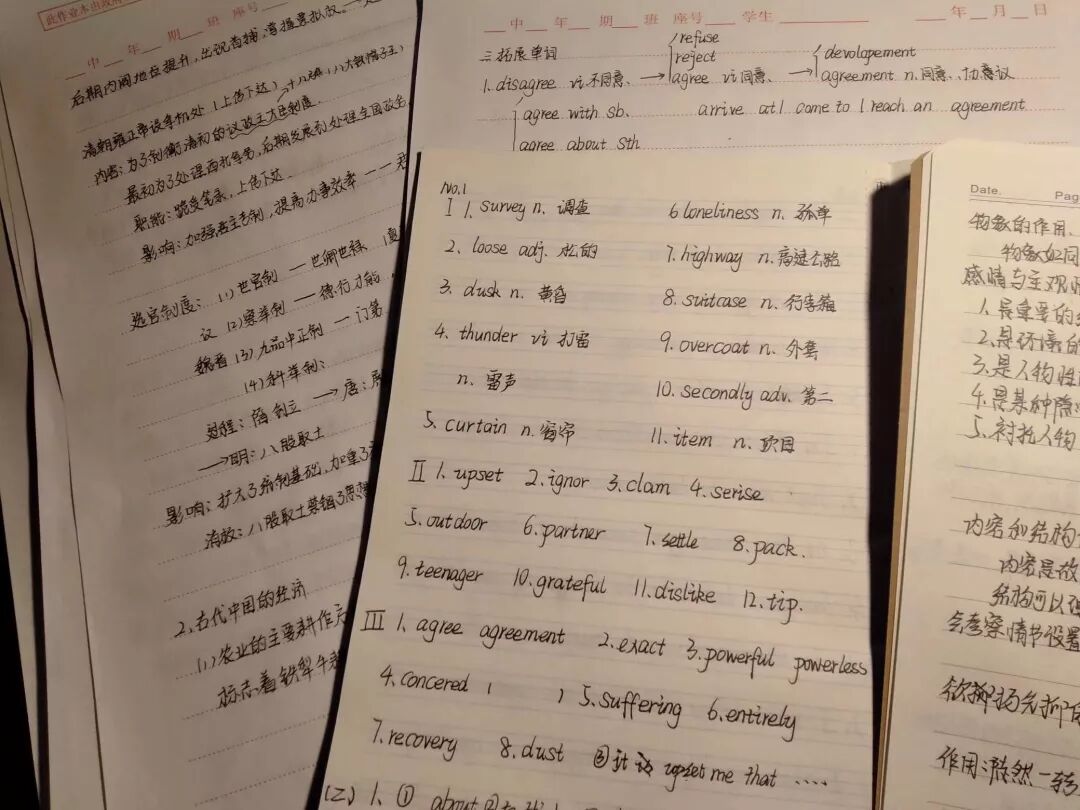 此作业本由政府
中 年 期 班 座号
后期内阁地位提升,出现首辅,
清朝雍正帝设军机处(上传下达)
内容:为了制衡清初的议政王大臣制度
最初为了处理西北军务,后期发展到处理全国政务
职能:跪受笔录,上传下达.
影响:加强君主专制,提高办事效率——君
选官制度:(1)世官制 — 世卿世禄
议(2)察举制 — 德行才能
魏晋(3)九品中正制 — 门第
(4)科举制:
过程:隋创立 → 唐:
→明:八股取士
影响:扩大了统治基础,加重了
消放:八股取士禁锢了思想
2.古代中国的经济
(1)农业的主要耕作方
标志着铁犁牛耕
中 年 期 班 座号 学生 年 月 日
三拓展单词
refuse
reject
devolapement
1. disagree vi 不同意、 → agree vi 同意、 → agreement n.同意、协意议
agree with sb. arrive at / come to / reach an agreement
agree about sth
No.1
I 1. survey n. 调查
2. loose adj. 松的
3. dusk n. 黄昏
4. thunder vi 打雷
n. 雷声
5. curtain n. 窗帘
6 loneliness n. 孤单
7. highway n. 高速公路
8. suitcase n. 行李箱
9. overcoat n. 外套
10. secondly adv. 第二
11. item n. 项目
II 1. upset 2. ignor 3. clam 4. serise
5. outdoor 6. partner 7. settle 8. pack.
9. teenager 10. grateful 11. dislike 12. tip.
III 1. agree agreement 2. exact 3. powerful powerless
4. concered ( ) 5. suffering 6. entirely
7. recovery 8. dust ③ it upset me that ....
(二) 1. ① about ②
Date. Pag
物象的作用、
物象如同
感情与主观情
1.是重要的
2.是环境的
3.是人物性
4.是某种隐
5.衬托人物
内容和结构
内容是故
结构可以
会考察情节设置
欲抑扬先抑
作用:陡然一转